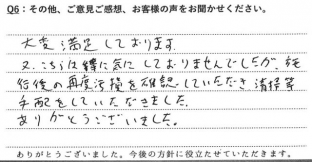 Q6:その他、ご意見ご感想、お客様の声をお聞かせください。
大変満足しております。
又、こちらは特に気にしておりませんでしたが、施
行後の再度汚損を確認していただき 清掃等
手配をしていただきました。
ありがとうございました。
ありがとうございました。今後の方針に役立たせていただきます。